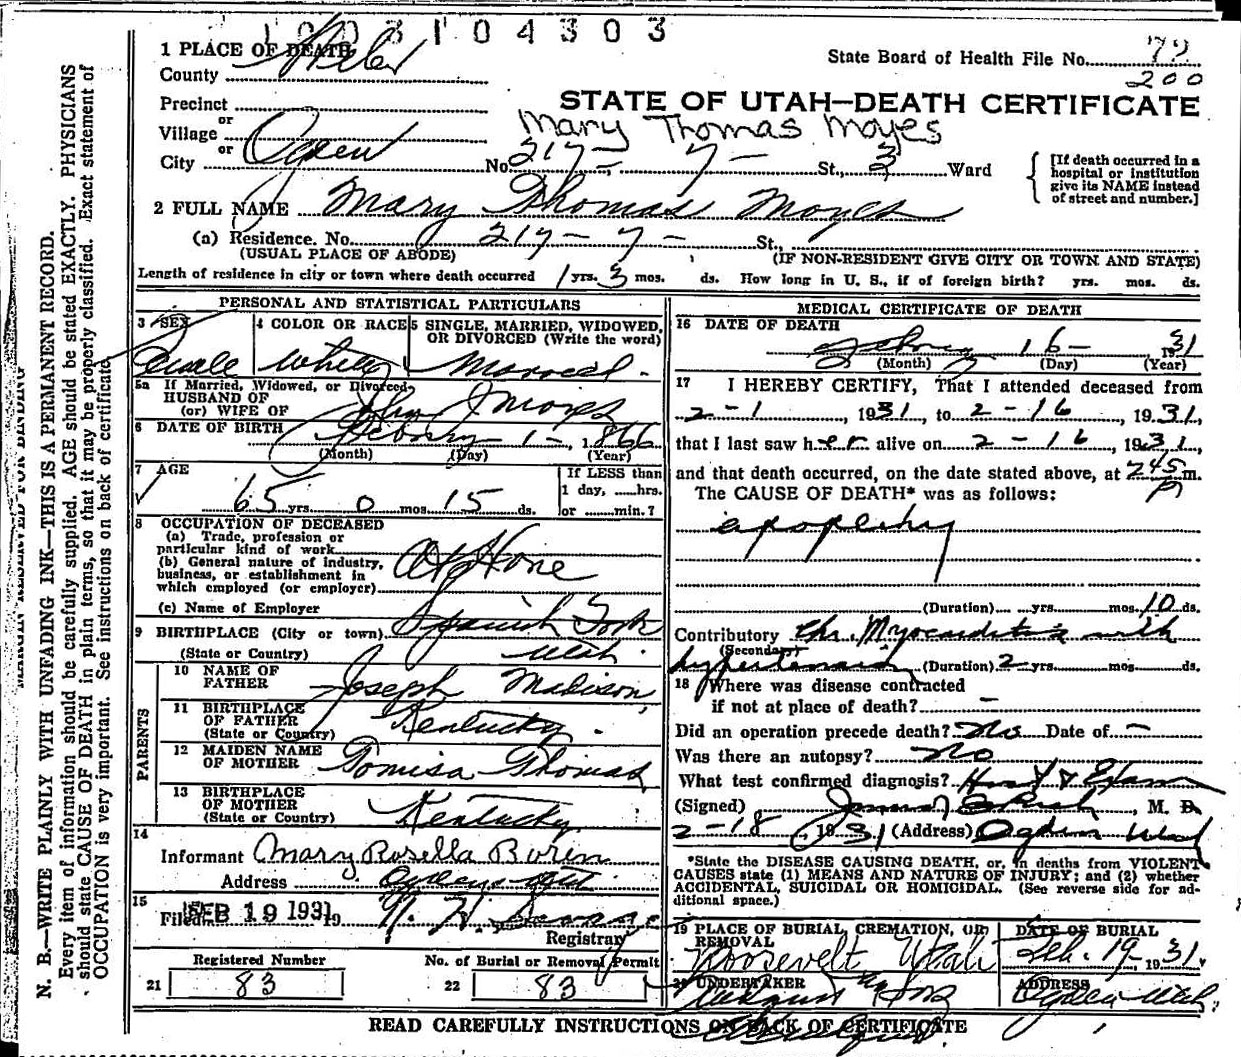 1 0 0 3 1 0 4 3 0 3
1 PLACE OF DEATH
County Weber
State Board of Health File No. 79
200
Precinct
or
Village
or
City Ogden
STATE OF UTAH—DEATH CERTIFICATE
Mary Thomas Moyes
No. 217 - 7 - St., 3 Ward
[If death occurred in a
hospital or institution
give its NAME instead
of street and number.]
2 FULL NAME Mary Thomas Moyes
(a) Residence. No. 217 - 7 - St.,
(USUAL PLACE OF ABODE) (IF NON-RESIDENT GIVE CITY OR TOWN AND STATE)
Length of residence in city or town where death occurred 1 yrs. 3 mos. ds. How long in U. S., if of foreign birth? yrs. mos. ds.
PERSONAL AND STATISTICAL PARTICULARS
3 SEX
Female
4 COLOR OR RACE
White
5 SINGLE, MARRIED, WIDOWED,
OR DIVORCED (Write the word)
Married
5a If Married, Widowed, or Divorced
HUSBAND OF
(or) WIFE OF John J Moyes
6 DATE OF BIRTH February 1 - 1866
(Month) (Day) (Year)
7 AGE
65 yrs 0 mos 15 ds.
If LESS than
1 day, hrs.
or min.?
8 OCCUPATION OF DECEASED
(a) Trade, profession or
particular kind of work
(b) General nature of industry,
business, or establishment in
which employed (or employer)
At Home
(c) Name of Employer
9 BIRTHPLACE (City or town) Spanish Fork
(State or Country) Utah.
PARENTS
10 NAME OF
FATHER Joseph Madison
11 BIRTHPLACE
OF FATHER
(State or Country) Kentucky.
12 MAIDEN NAME
OF MOTHER Tomisa Thomas
13 BIRTHPLACE
OF MOTHER
(State or Country) Kentucky.
14
Informant Mary Rosella Buren
Address Ogden, Ut
15
Filed FEB 19 1931 19
Registrar
Registered Number
21 83
No. of Burial or Removal Permit
22 83
MEDICAL CERTIFICATE OF DEATH
16 DATE OF DEATH
February 16 - 1931
(Month) (Day) (Year)
17 I HEREBY CERTIFY, That I attended deceased from
2 - 1, 1931, to 2 - 16, 1931,
that I last saw her alive on 2 - 16, 1931,
and that death occurred, on the date stated above, at 2 45 P m.
The CAUSE OF DEATH* was as follows:
apoplexy
(Duration) yrs. mos. 10 ds.
Contributory Chr. Myocarditis with
(Secondary)
hypertension (Duration) 2 yrs. mos. ds.
18 Where was disease contracted
if not at place of death? -
Did an operation precede death? No Date of -
Was there an autopsy? No
What test confirmed diagnosis? Hist & Exam
(Signed) M. D.
2-18, 1931 (Address) Ogden Utah
*State the DISEASE CAUSING DEATH, or, in deaths from VIOLENT
CAUSES state (1) MEANS AND NATURE OF INJURY; and (2) whether
ACCIDENTAL, SUICIDAL OR HOMICIDAL. (See reverse side for ad-
ditional space.)
19 PLACE OF BURIAL, CREMATION, OR
REMOVAL
Roosevelt Utah
DATE OF BURIAL
Feb. 19, 1931.
20 UNDERTAKER
ADDRESS
Ogden Utah
READ CAREFULLY INSTRUCTIONS ON BACK OF CERTIFICATE
N. B.—WRITE PLAINLY WITH UNFADING INK—THIS IS A PERMANENT RECORD.
Every item of information should be carefully supplied. AGE should be stated EXACTLY. PHYSICIANS
should state CAUSE OF DEATH in plain terms, so that it may be properly classified. Exact statement of
OCCUPATION is very important. See instructions on back of certificate